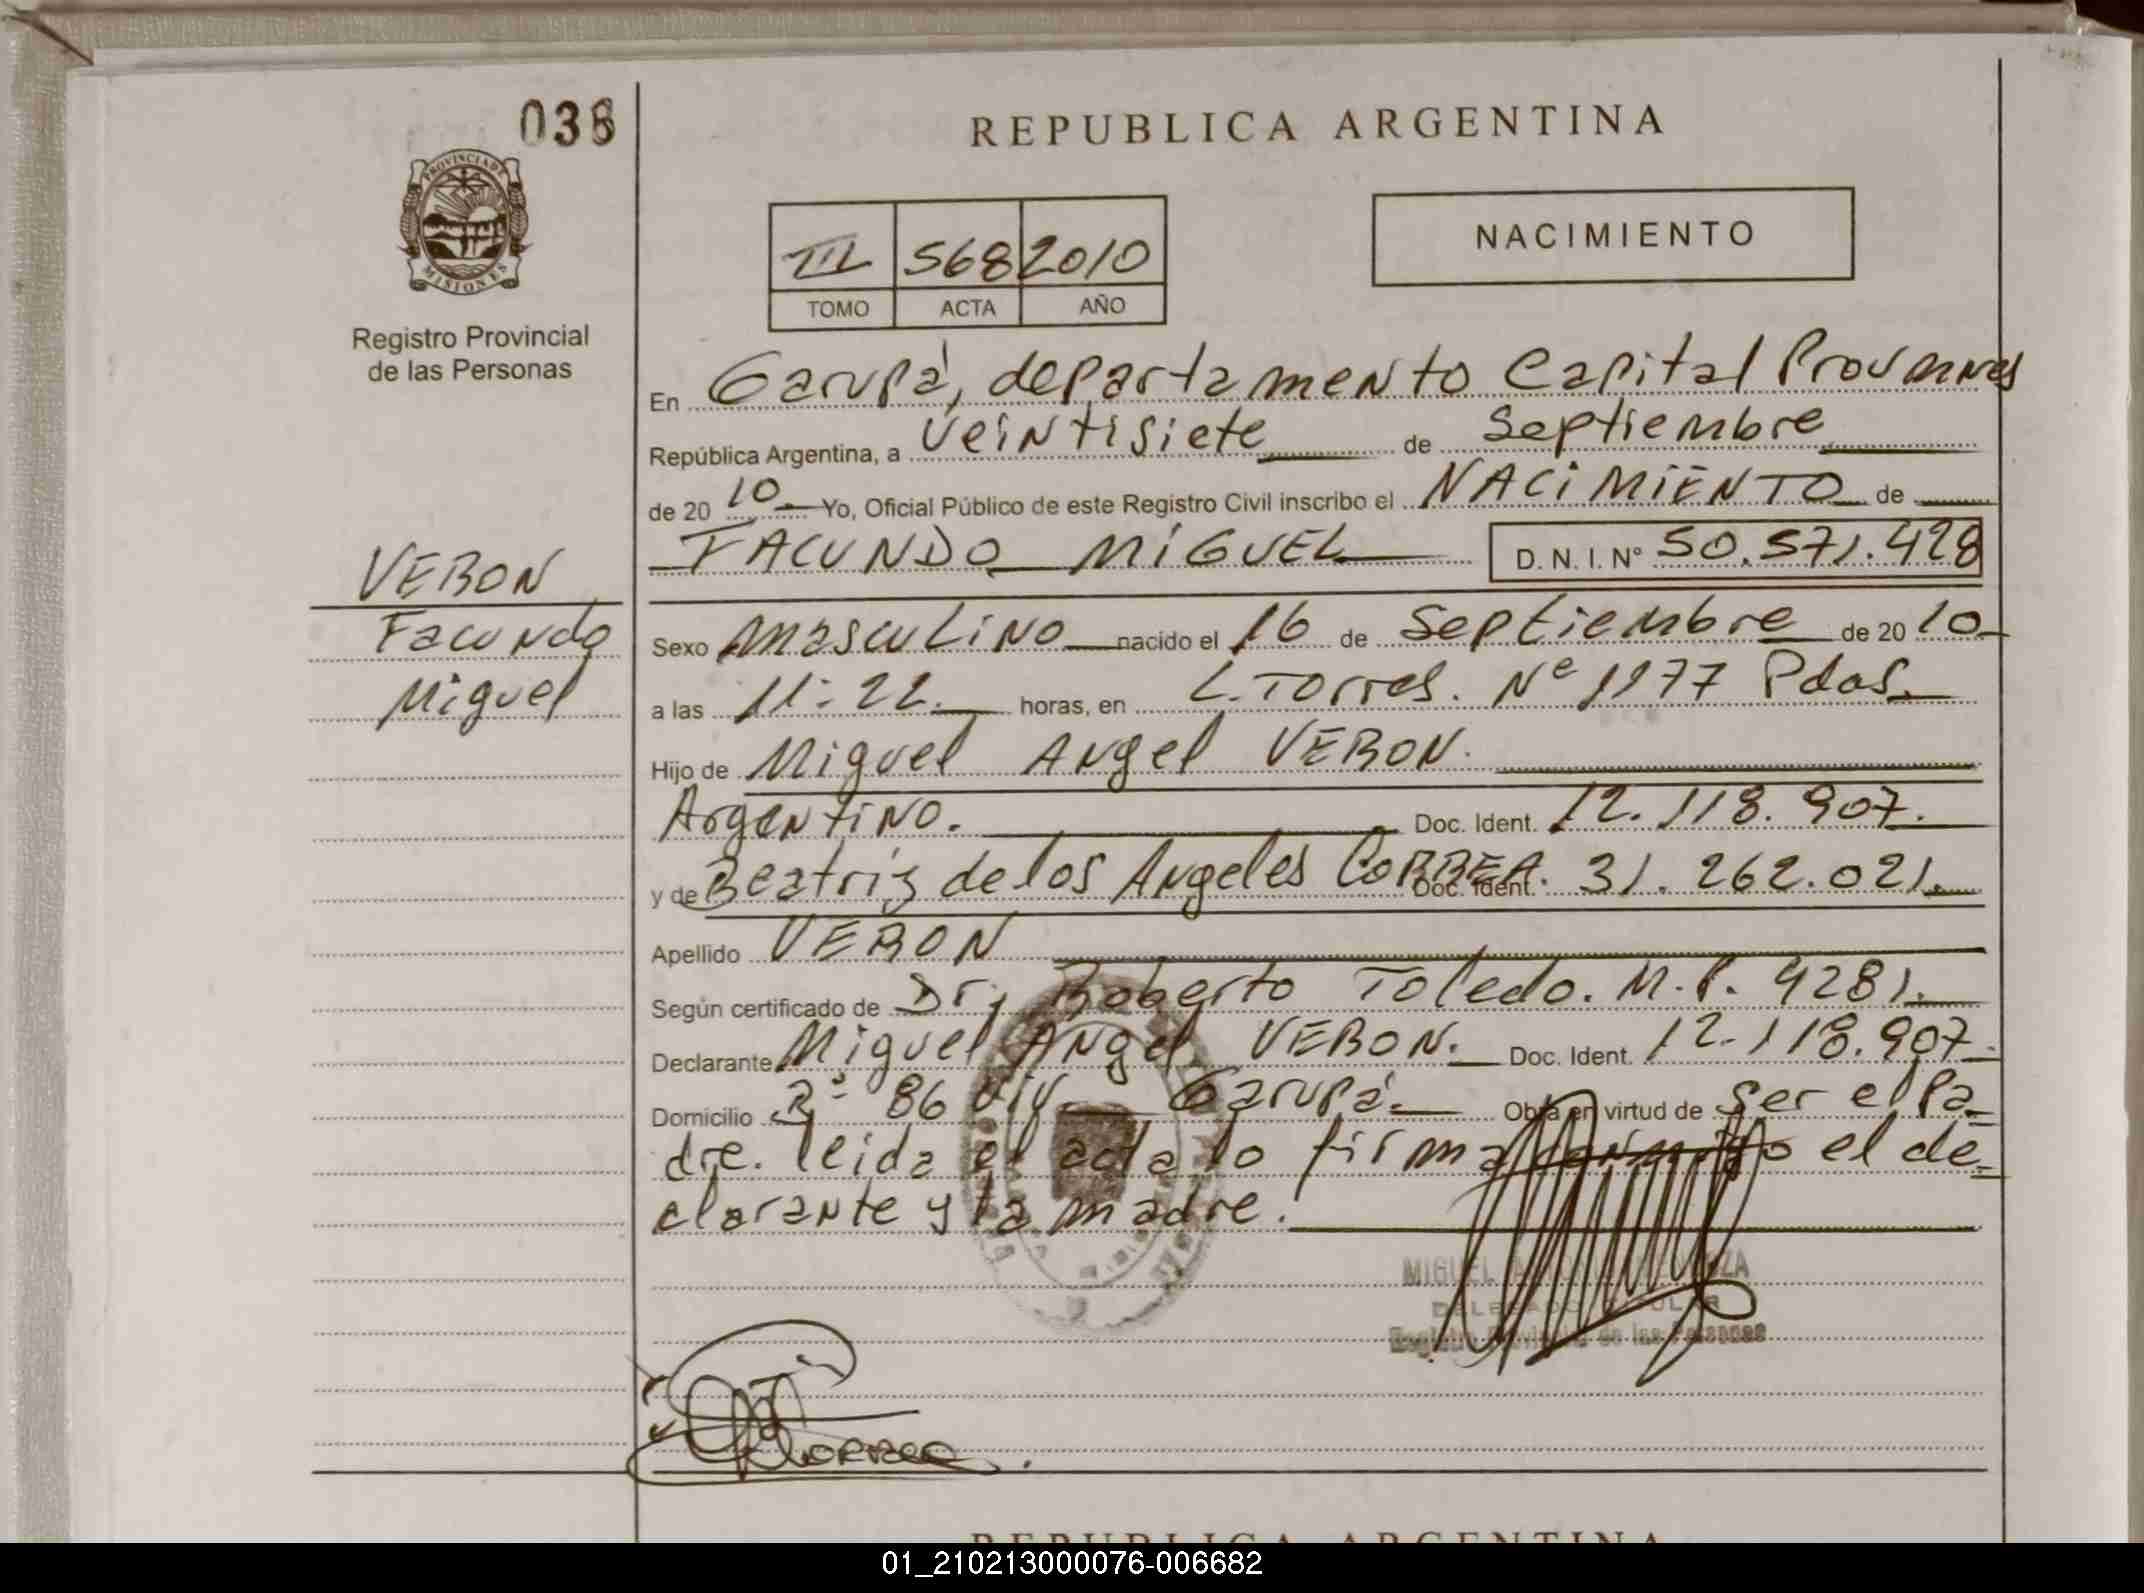 038
REPUBLICA ARGENTINA
PROVINCIA DE
MISIONES
Registro Provincial
de las Personas
III 568 2010
TOMO ACTA AÑO
NACIMIENTO
En Garupá, departamento Capital
República Argentina, a veintisiete de septiembre
de 20 10. Yo, Oficial Público de este Registro Civil inscribo el NACIMIENTO de
FACUNDO MIGUEL D. N. I. Nº 50.571.428
VERON
Facundo
Miguel
Sexo masculino nacido el 16 de septiembre de 20 10
a las 11:22. horas, en L. Torres. Nº 1177 Pdas.
Hijo de Miguel Angel VERON.
Argentino. Doc. Ident. 12.118.907.
y de Beatriz de los Angeles CORREA. Doc. Ident. 31.262.021.
Apellido VERON
Según certificado de Dr. Roberto Toledo. M.P. 4281.
Declarante Miguel Angel VERON. Doc. Ident. 12.118.907
Domicilio 86 viv Garupá. Obra en virtud de ser el Pa-
dre. leida el acta lo firma conmigo el de-
clarante y la madre.
MIGUEL
DELEGADO TITULAR
Registro Provincial de las Personas
Correa
REPUBLICA ARGENTINA
01_210213000076-006682